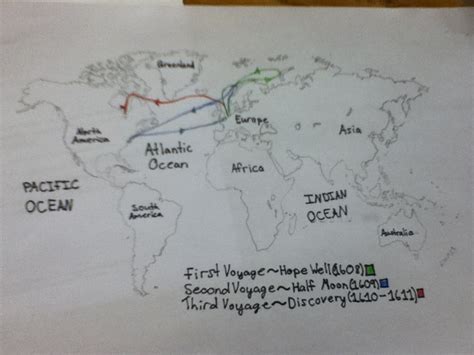 Greenland
North
America
Europe
Asia
Atlantic
Ocean
Africa
PACIFIC
OCEAN
South
America
INDIAN
OCEAN
Australia
First Voyage~Hope Well(1608)
Second Voyage~Half Moon(1609)
Third Voyage~Discovery(1610-1611)